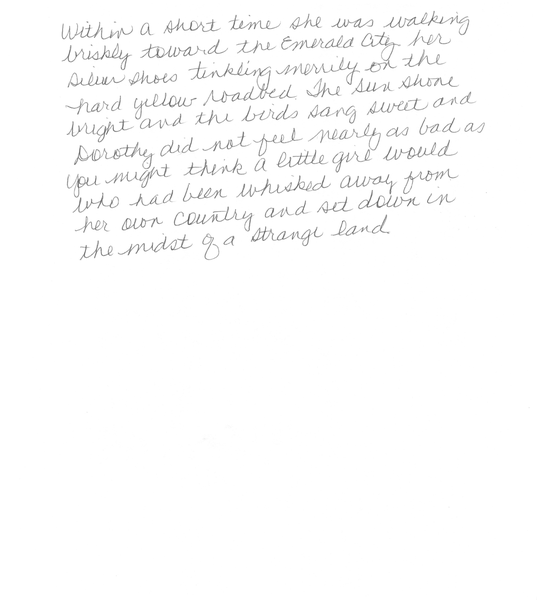 Within a short time she was walking
briskly toward the Emerald City her
Silver Shoes tinkling merrily on the
hard yellow roadbed. The Sun shone
bright and the birds sang sweet and
Dorothy did not feel nearly as bad as
you might think a little girl would
who had been whisked away from
her own country and set down in
the midst of a strange land.